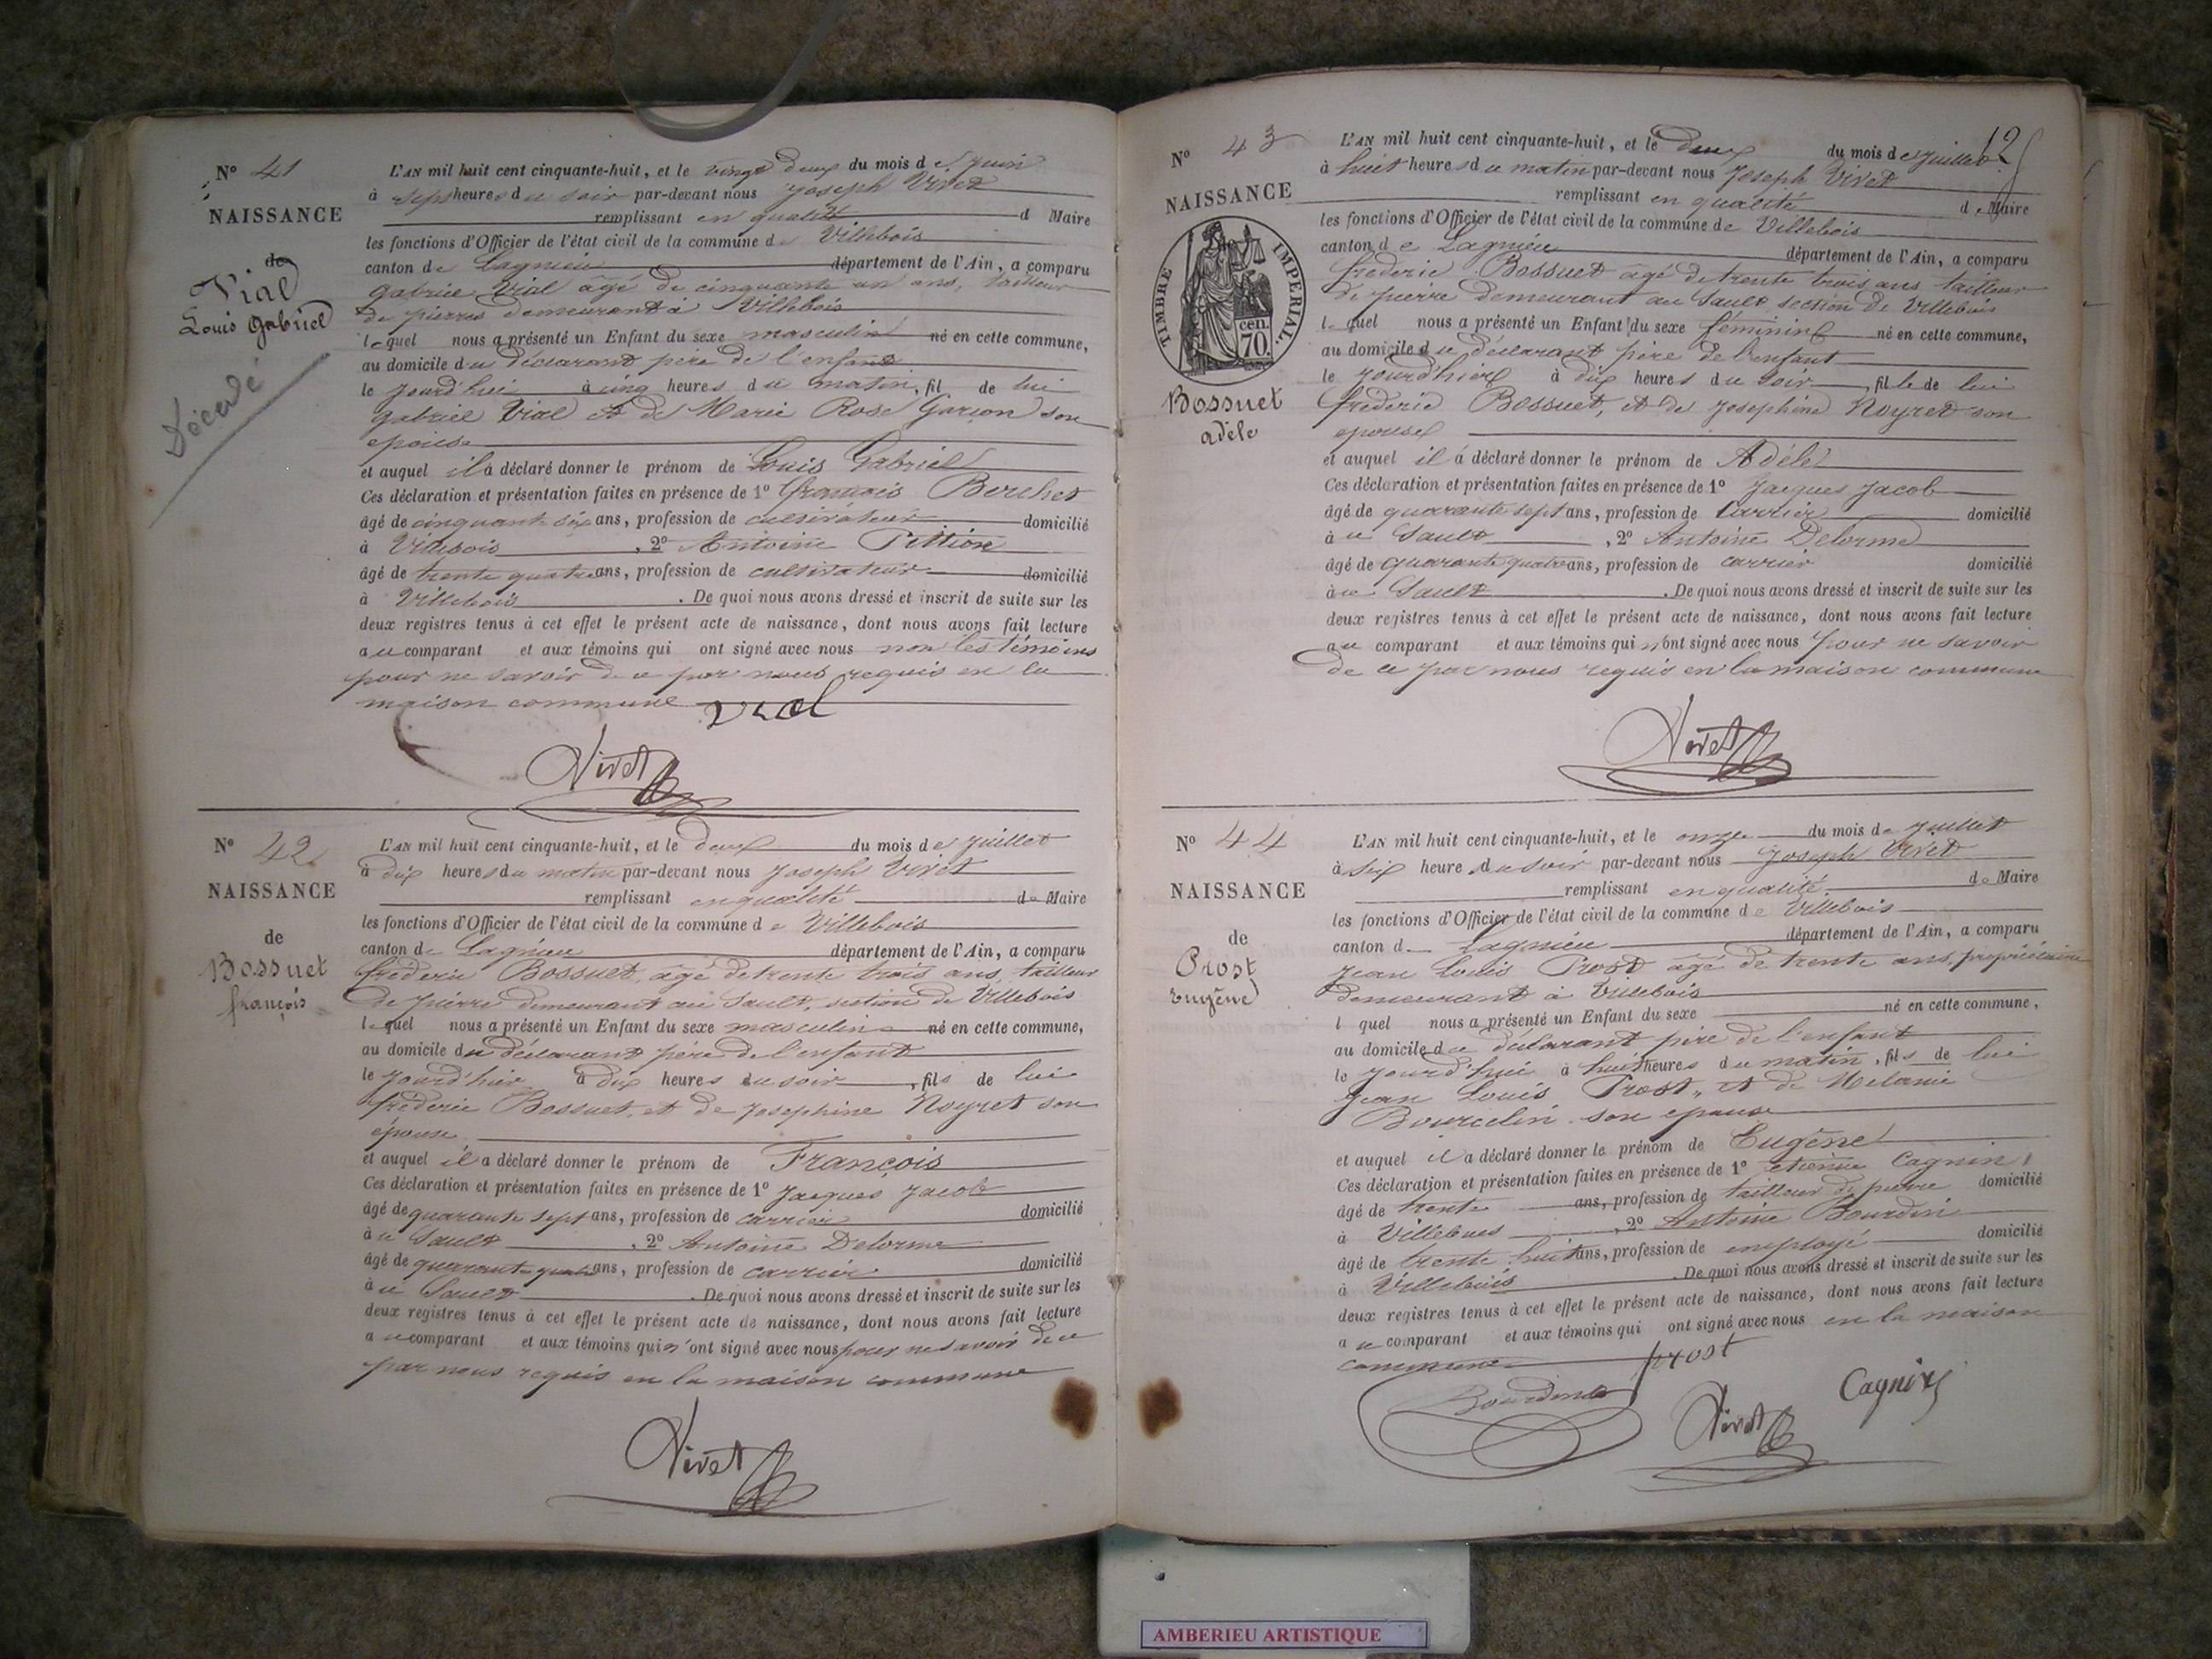 N° 41
NAISSANCE
de
Vial
Louis Gabriel
Décédé
L'AN mil huit cent cinquante-huit, et le vingt deux du mois de Juin
à sept heures du soir par-devant nous Joseph Vivet
remplissant en qualité d Maire
les fonctions d'Officier de l'état civil de la commune de Villebois
canton de Lagnieu département de l'Ain, a comparu
Gabriel Vial âgé de cinquante un ans, tailleur
de pierres demeurant à Villebois
lequel nous a présenté un Enfant du sexe masculin né en cette commune,
au domicile du déclarant père de l'enfant
le jourd'hui à cinq heures du matin, fil de lui
Gabriel Vial et de Marie Rose Garion son
épouse
et auquel il a déclaré donner le prénom de Louis Gabriel
Ces déclaration et présentation faites en présence de 1° François Berchet
âgé de cinquante six ans, profession de cultivateur domicilié
à Villebois, 2° Antoine Pittion
âgé de trente quatre ans, profession de cultivateur domicilié
à Villebois. De quoi nous avons dressé et inscrit de suite sur les
deux registres tenus à cet effet le présent acte de naissance, dont nous avons fait lecture
au comparant et aux témoins qui ont signé avec nous non les témoins
pour ne savoir de ce par nous requis en la
maison commune Vial
Vivet
N° 42
NAISSANCE
de
Bossuet
françois
L'AN mil huit cent cinquante-huit, et le deux du mois de Juillet
à dix heures du matin par-devant nous Joseph Vivet
remplissant en qualité de Maire
les fonctions d'Officier de l'état civil de la commune de Villebois
canton de Lagnieu département de l'Ain, a comparu
fréderic Bossuet, âgé de trente trois ans, tailleur
de pierre demeurant au Sault, section de Villebois
lequel nous a présenté un Enfant du sexe masculin né en cette commune,
au domicile du déclarant père de l'enfant
le jourd'hier à dix heures du soir, fils de lui
fréderic Bossuet, et de Josephine Noyret son
épouse
et auquel il a déclaré donner le prénom de François
Ces déclaration et présentation faites en présence de 1° Jacques Jacob
âgé de quarante sept ans, profession de carrier domicilié
au Sault, 2° Antoine Delorme
âgé de quarante quatre ans, profession de carrier domicilié
au Sault. De quoi nous avons dressé et inscrit de suite sur les
deux registres tenus à cet effet le présent acte de naissance, dont nous avons fait lecture
au comparant et aux témoins qui n'ont signé avec nous pour ne savoir de ce
par nous requis en la maison commune
Vivet
12
N° 43
NAISSANCE
TIMBRE IMPERIAL.
cen.
70.
Bossuet
adèle
L'AN mil huit cent cinquante-huit, et le deux du mois de Juillet
à huit heures du matin par-devant nous Joseph Vivet
remplissant en qualité de Maire
les fonctions d'Officier de l'état civil de la commune de Villebois
canton de Lagnieu département de l'Ain, a comparu
fréderic Bossuet âgé de trente trois ans tailleur
de pierre demeurant au Sault section de Villebois
lequel nous a présenté un Enfant du sexe féminin né en cette commune,
au domicile du déclarant père de l'enfant
le jourd'hier à dix heures du soir, fille de lui
fréderic Bossuet, et de Josephine Noyret son
épouse
et auquel il a déclaré donner le prénom de Adéle
Ces déclaration et présentation faites en présence de 1° Jacques Jacob
âgé de quarante sept ans, profession de Carrier domicilié
au Sault, 2° Antoine Delorme
âgé de quarante quatre ans, profession de carrier domicilié
au Sault. De quoi nous avons dressé et inscrit de suite sur les
deux registres tenus à cet effet le présent acte de naissance, dont nous avons fait lecture
au comparant et aux témoins qui n'ont signé avec nous pour ne savoir
de ce par nous requis en la maison commune
Vivet
N° 44
NAISSANCE
de
Prost
Eugène
L'AN mil huit cent cinquante-huit, et le onze du mois de Juillet
à six heure du soir par-devant nous Joseph Vivet
remplissant en qualité de Maire
les fonctions d'Officier de l'état civil de la commune de Villebois
canton d Lagnieu département de l'Ain, a comparu
Jean Louis Prost âgé de trente ans, propriétaire
demeurant à Villebois
l quel nous a présenté un Enfant du sexe né en cette commune,
au domicile du déclarant père de l'enfant
le jourd'hui à huit heures du matin, fils de lui
Jean Louis Prost, et de Melanie
Bourcelin son épouse
et auquel il a déclaré donner le prénom de Eugène
Ces déclaration et présentation faites en présence de 1° etienne Cagnin
âgé de trente ans, profession de tailleur de pierre domicilié
à Villebois, 2° Antoine Bourdin
âgé de trente huit ans, profession de employé domicilié
à Villebois. De quoi nous avons dressé et inscrit de suite sur les
deux registres tenus à cet effet le présent acte de naissance, dont nous avons fait lecture
au comparant et aux témoins qui ont signé avec nous en la maison
commune prost
Bourdin Vivet Cagnin
AMBERIEU ARTISTIQUE